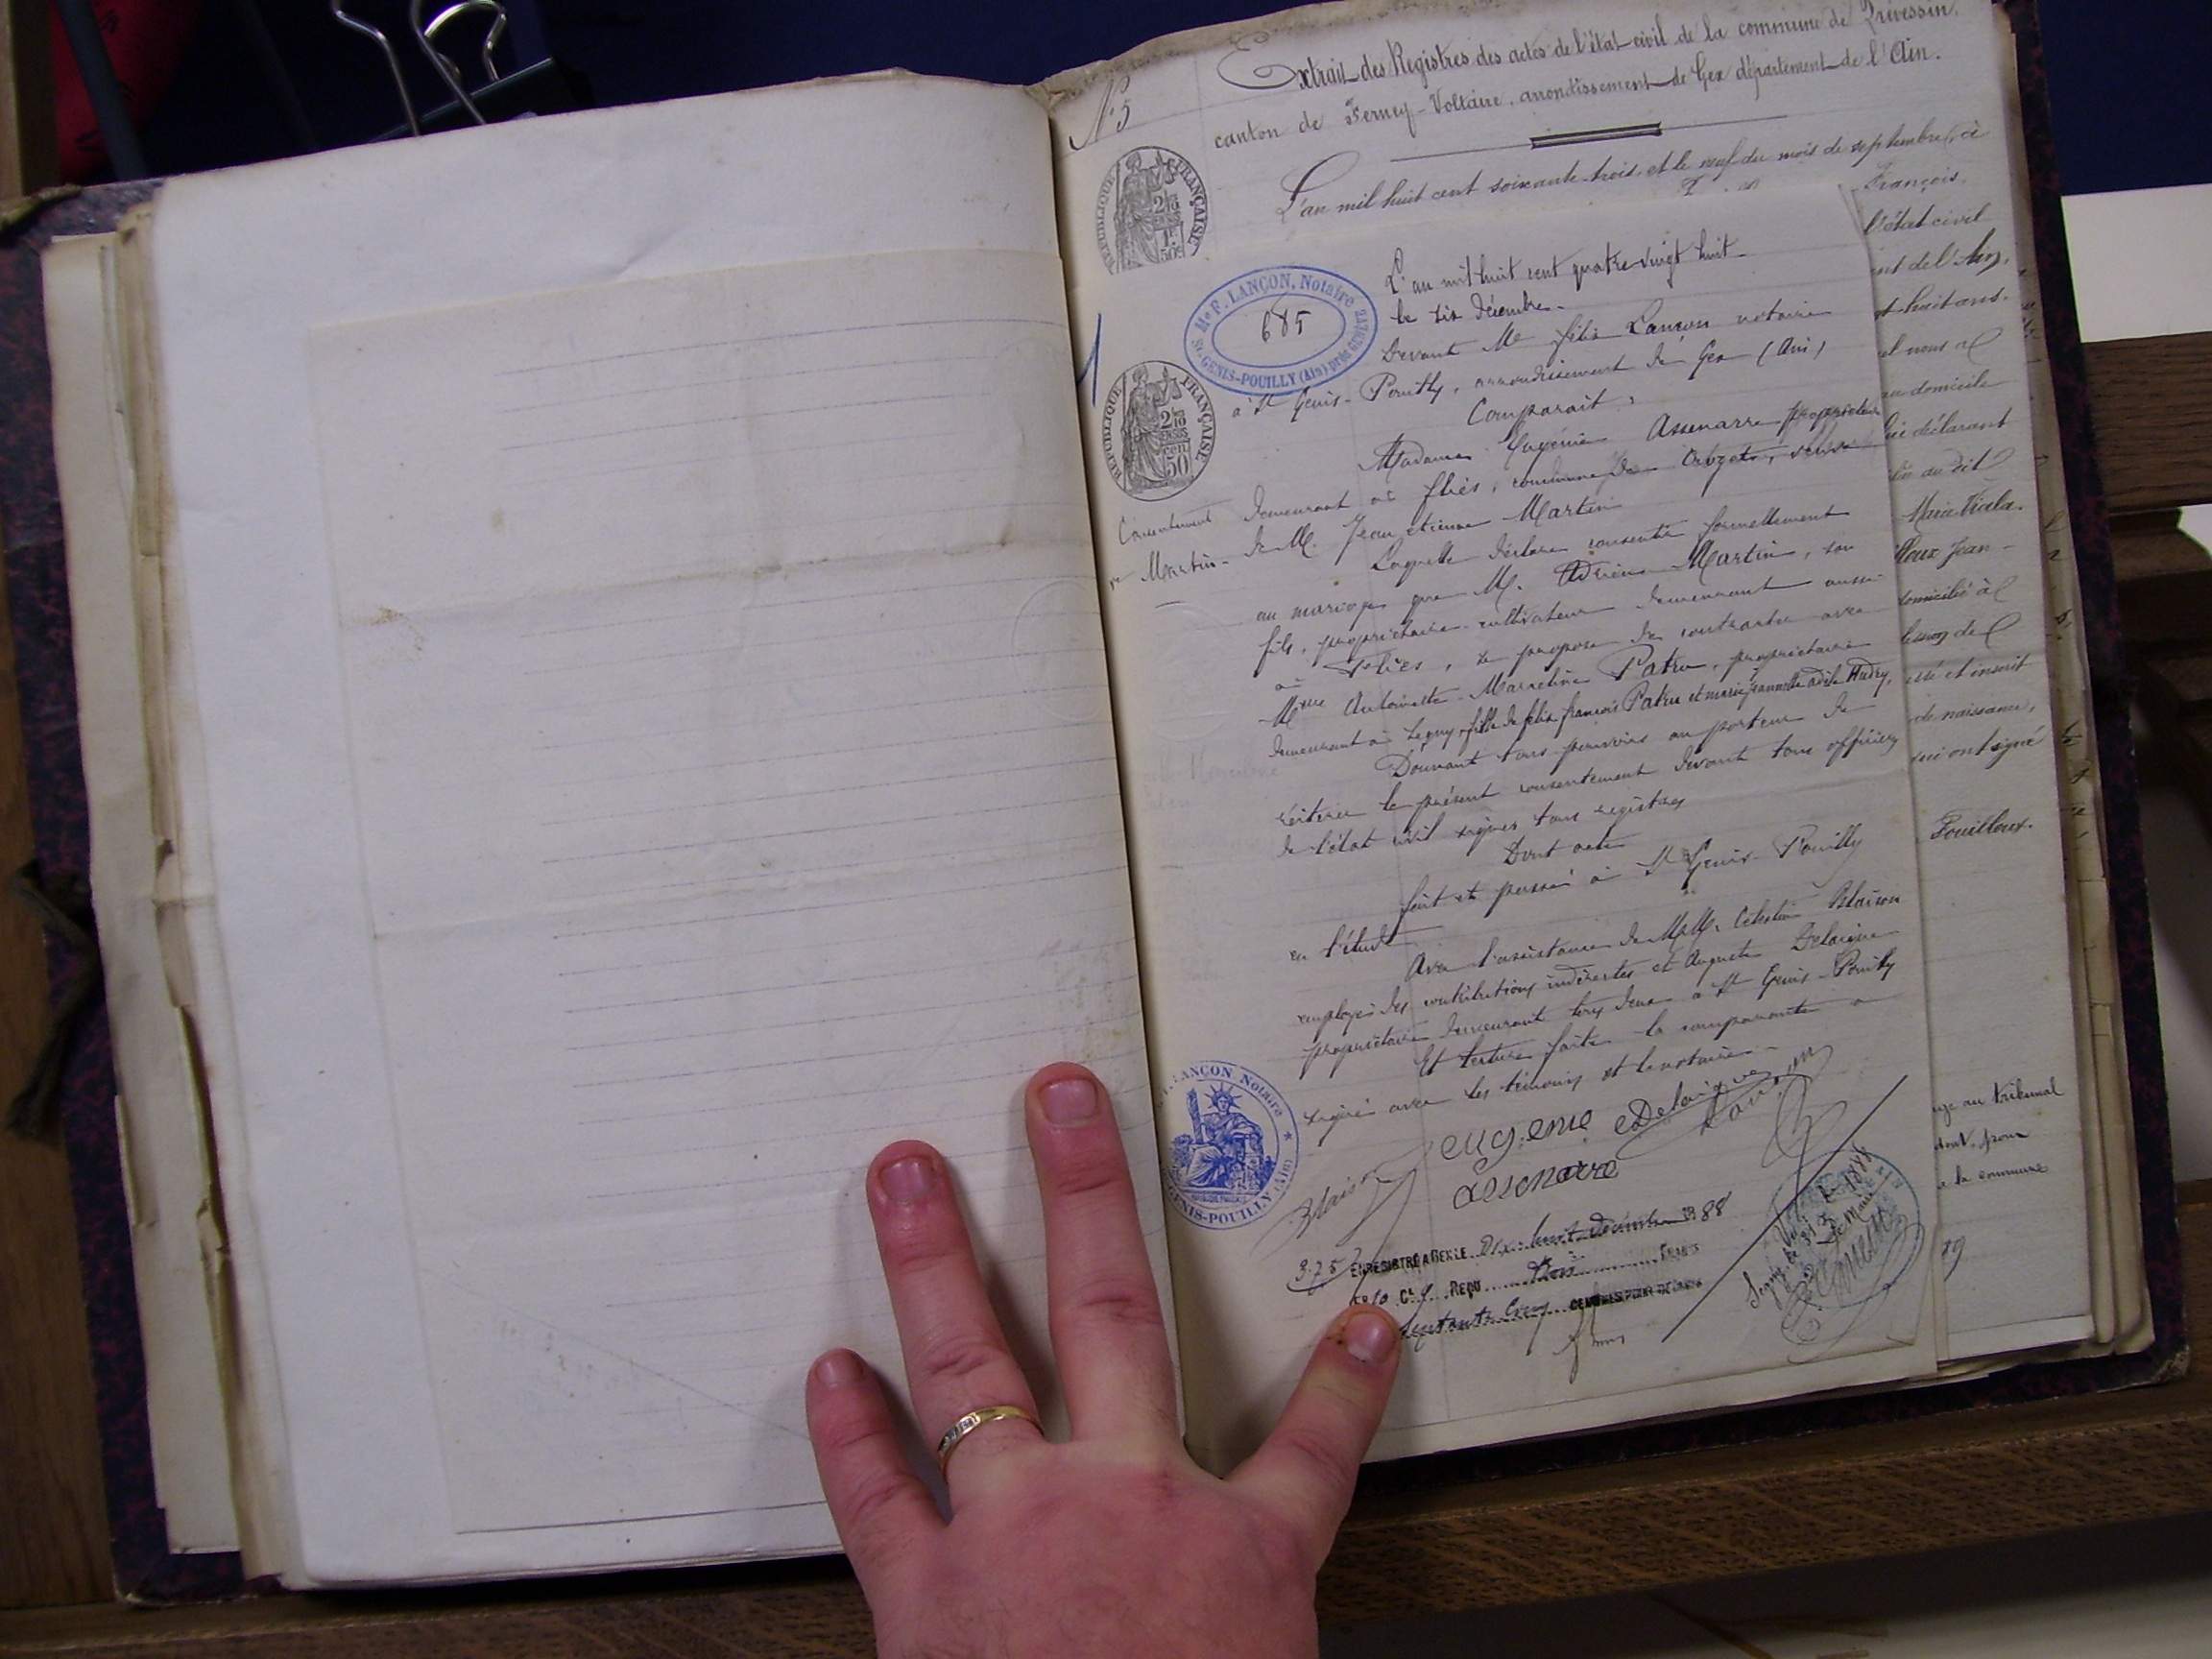 N° 5
Extrait des Registres des actes de l'état civil de la commune de Prévessin,
canton de Ferney-Voltaire, arrondissement de Gex département de l'Ain.
L'an mil huit cent soixante-trois et le neuf du mois de septembre, à
François
l'état civil
de l'Ain,
huit ans,
nous
au domicile
déclarant
au dit
Maria Viala
Jean-
domicilié à
de
et inscrit
de naissance,
qui ont signé
Fouilloux.
au tribunal
pour
la commune
RÉPUBLIQUE FRANÇAISE
2/10
EN SUS
1F
50c
Me F. LANÇON, Notaire
St GENIS-POUILLY (Ain)
685
RÉPUBLIQUE FRANÇAISE
2/10
EN SUS
50
L'an mil huit cent quatre vingt huit
le six décembre.
Devant Me félix Lançon notaire
à St Genis-Pouilly, arrondissement de Gex (Ain)
Comparait,
Madame Eugénie Assenarre propriétaire
demeurant à flies, commune de veuve
de M. Jean étienne Martin
Consentement
Martin
Laquelle déclare consentir formellement
au mariage que M. Adrien Martin, son
fils, propriétaire-cultivateur demeurant aussi
à flies, se propose de contracter avec
Melle Antoinette-Marceline Patru, propriétaire
demeurant à Segny, fille de félix françois Patru et marie jeannette adèle Hudry,
Donnant tous pouvoirs au porteur de
réitérer le présent consentement devant tous officiers
de l'état civil signer tous registres
Dont acte
fait et passé à St Genis-Pouilly
en l'étude
Avec l'assistance de MM. Célestin Blaison
employé des contributions indirectes et Auguste Delaigue
propriétaire demeurant tous deux à St Genis-Pouilly
Et lecture faite la comparante a
signé avec les témoins et le notaire.
eugenie Delaigue
assenarre
Blaison
F. LANÇON Notaire
GENIS-POUILLY (AIN)
3.75 ENREGISTRÉ A GEX LE Dix huit décembre 1888
Fo 10 Ce REÇU trois FRANCS
septante cinq
1888
Le Maire